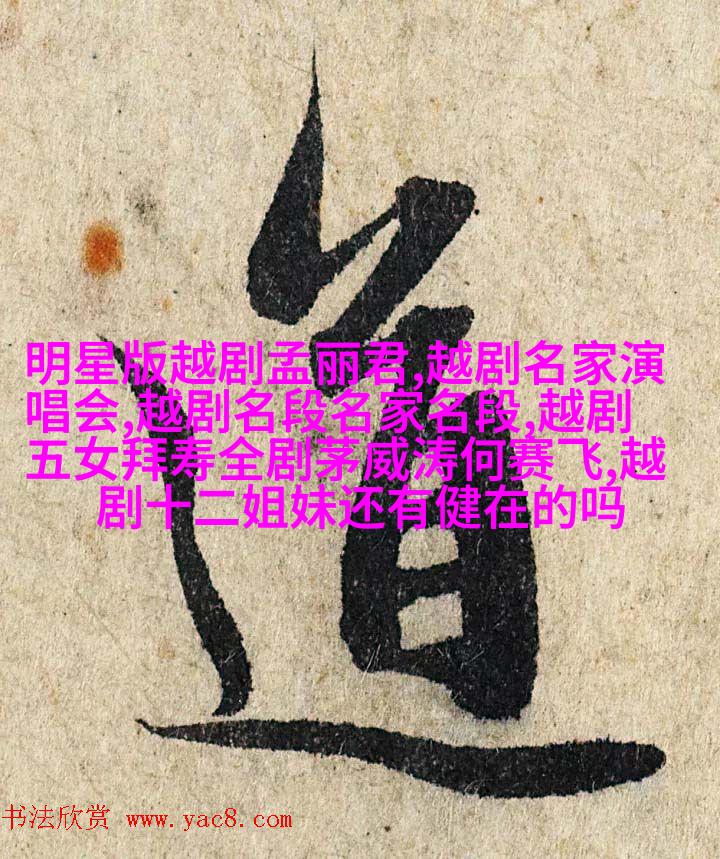 道
明星版越剧孟丽君,越剧名家演
唱会,越剧名段名家名段,越剧
五女拜寿全剧茅威涛何赛飞,越
剧十二姐妹还有健在的吗
书法欣赏 www.yac8.com